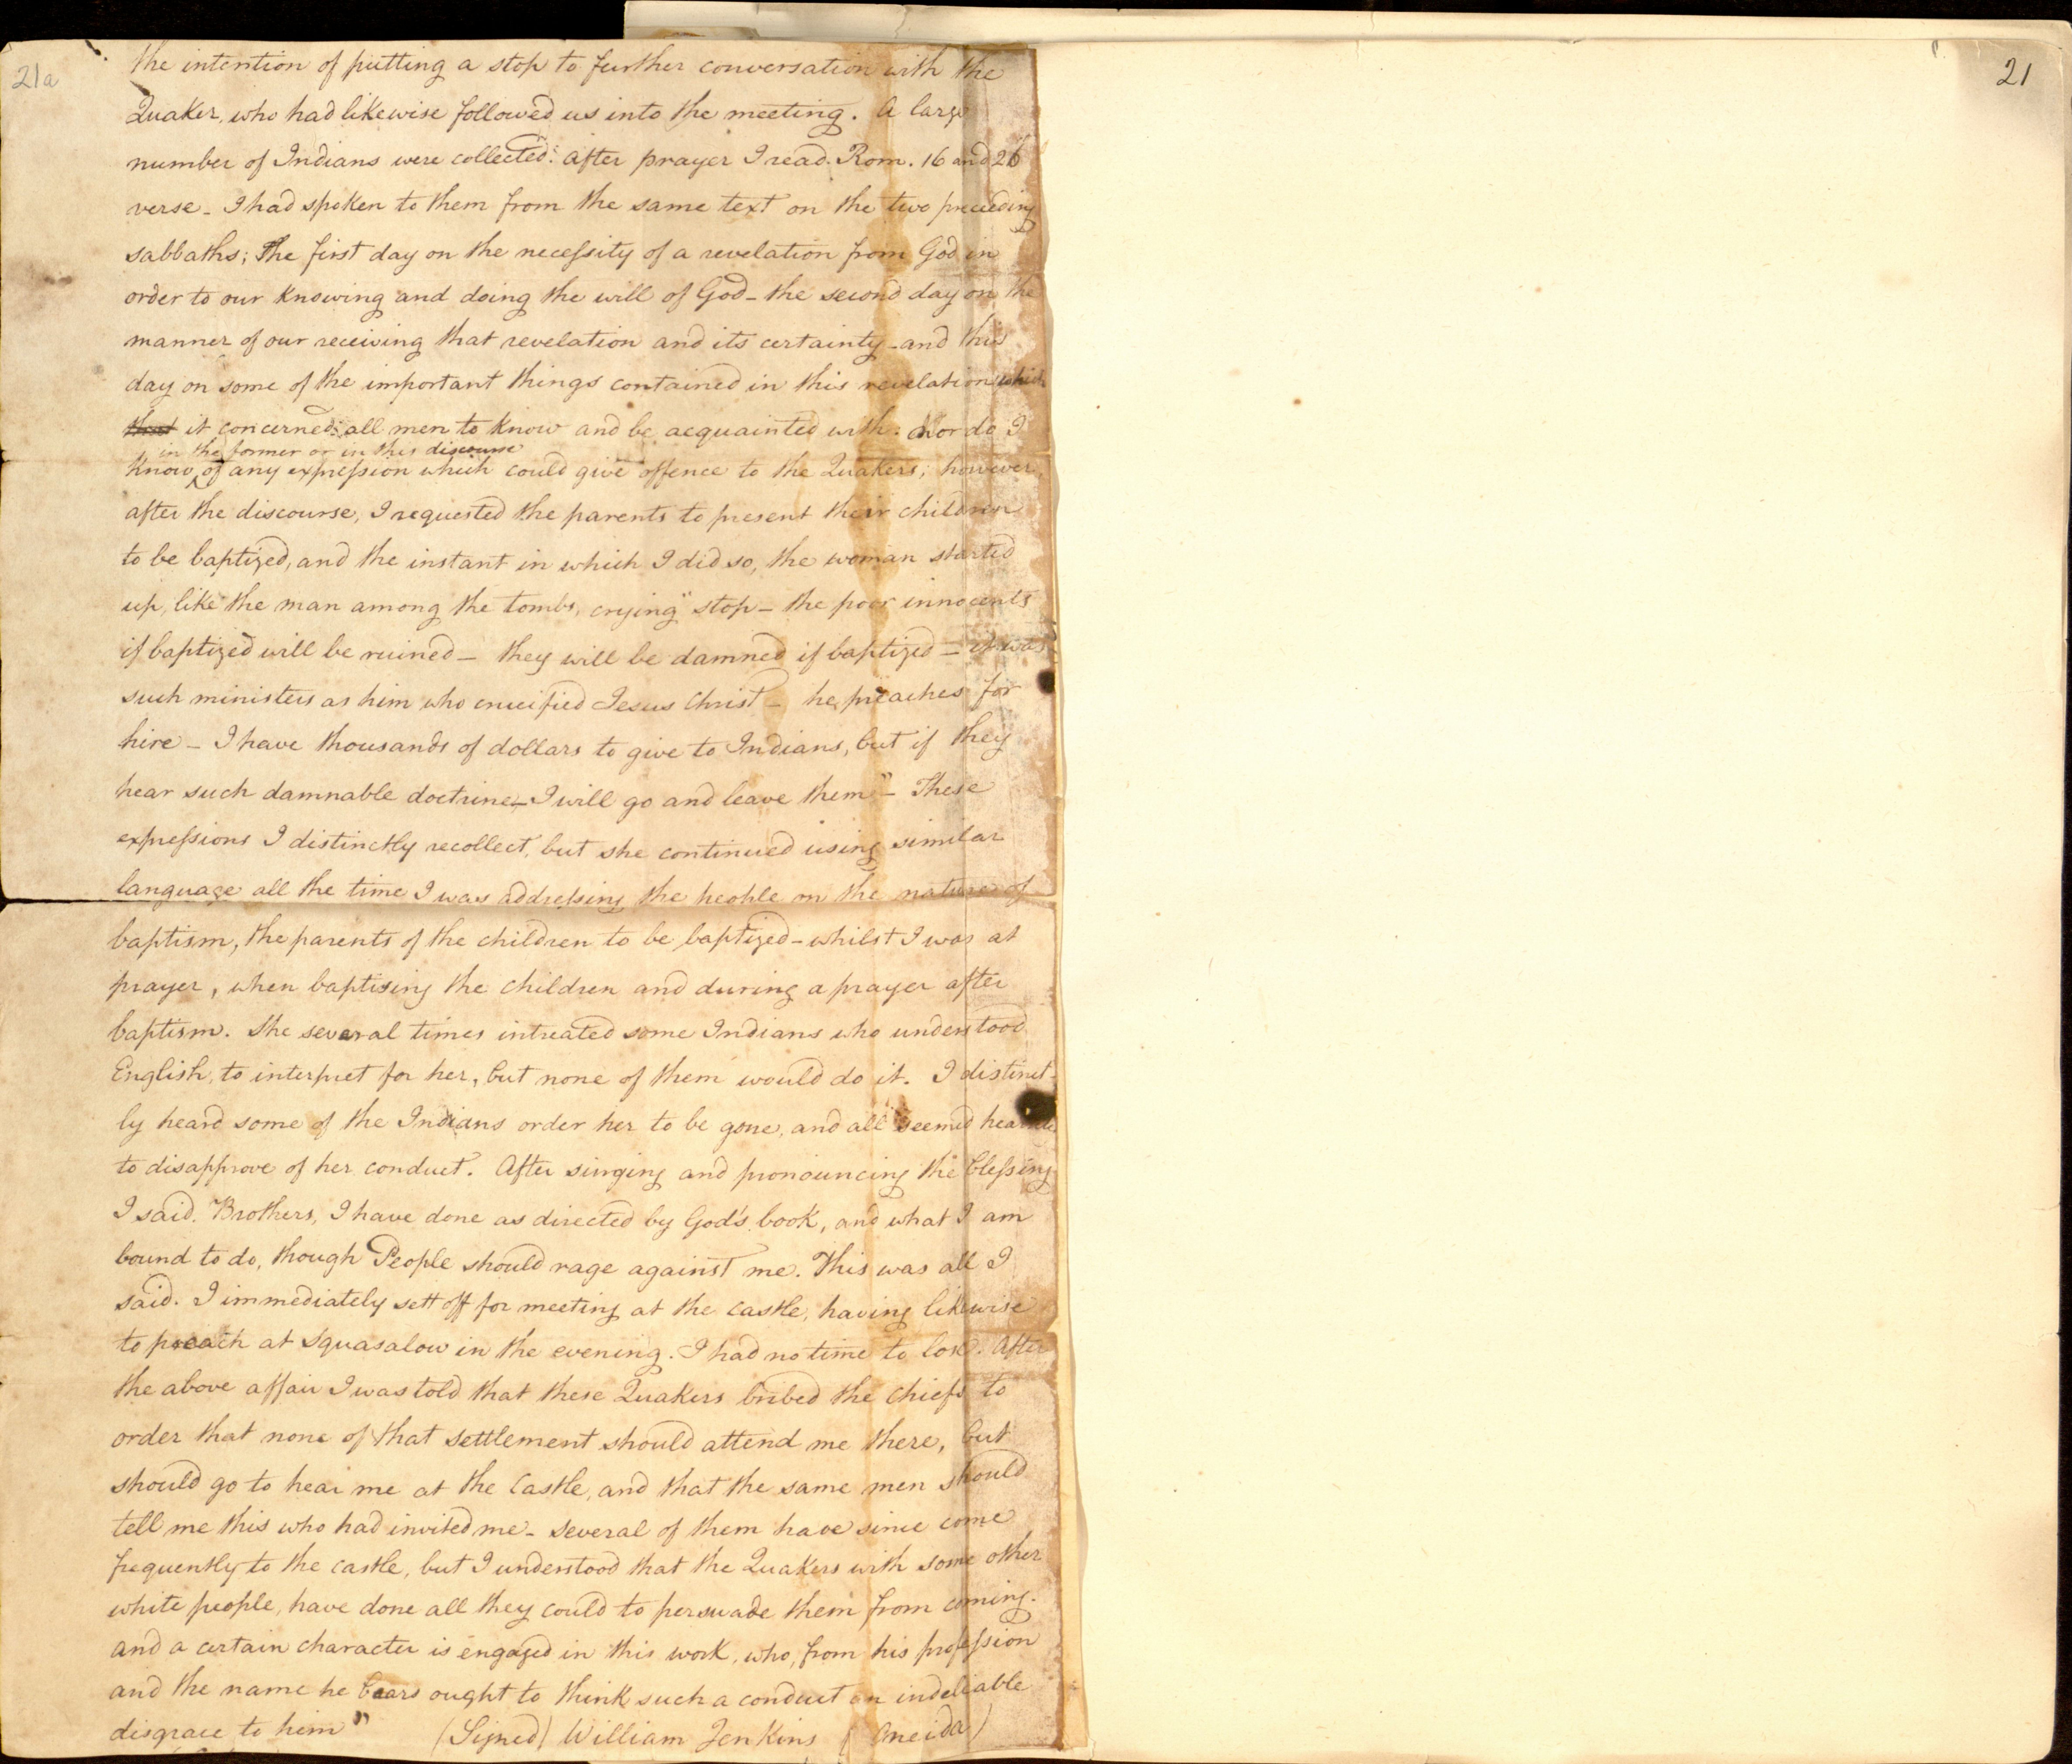 21a
21
the intention of putting a stop to further conversation with the
Quaker, who had likewise followed us into the meeting. A large
number of Indians were collected: After prayer I read Rom. 16 and 26
verse - I had spoken to them from the same text on the two preceeding
sabbaths; The first day on the necessity of a revelation from God in
order to our knowing and doing the will of God - the second day on the
manner of our receiving that revelation and its certainty - and this
day on some of the important things contained in this revelation which
that it concerned all men to know and be acquainted with. Nor do I
in the former or in this discourse
know, of any expression which could give offence to the Quakers; however,
after the discourse, I requested the parents to present their children
to be baptized, and the instant in which I did so, the woman started
up, like the man among the tombs, crying "stop - the poor innocents
if baptized will be ruined - they will be damned if baptized - it was
such ministers as him who crucified Jesus Christ - he preaches for
hire - I have thousands of dollars to give to Indians, but if they
hear such damnable doctrine - I will go and leave them" - These
expressions I distinctly recollect, but she continued using similar
language all the time I was addressing the people on the nature of
baptism, the parents of the children to be baptized - whilst I was at
prayer, when baptising the children and during a prayer after
baptism. She several times intreated some Indians who understood
English, to interpret for her, but none of them would do it. I distinct-
ly heard some of the Indians order her to be gone, and all seemed
to disapprove of her conduct. After singing and pronouncing the blessing
I said. "Brothers, I have done as directed by God's book, and what I am
bound to do, though People should rage against me. This was all I
said. I immediately sett off for meeting at the castle, having likewise
to preach at Squasalow in the evening. I had no time to lose. After
the above affair I was told that these Quakers bribed the chiefs to
order that none of that settlement should attend me there, but
should go to hear me at the Castle, and that the same men should
tell me this who had invited me - several of them have since come
frequently to the castle, but I understood that the Quakers with some other
white people, have done all they could to persuade them from coming.
and a certain character is engaged in this work, who, from his profession
and the name he bears ought to think such a conduct an indeliable
disgrace to him" (Signed) William Jenkins (Oneida)